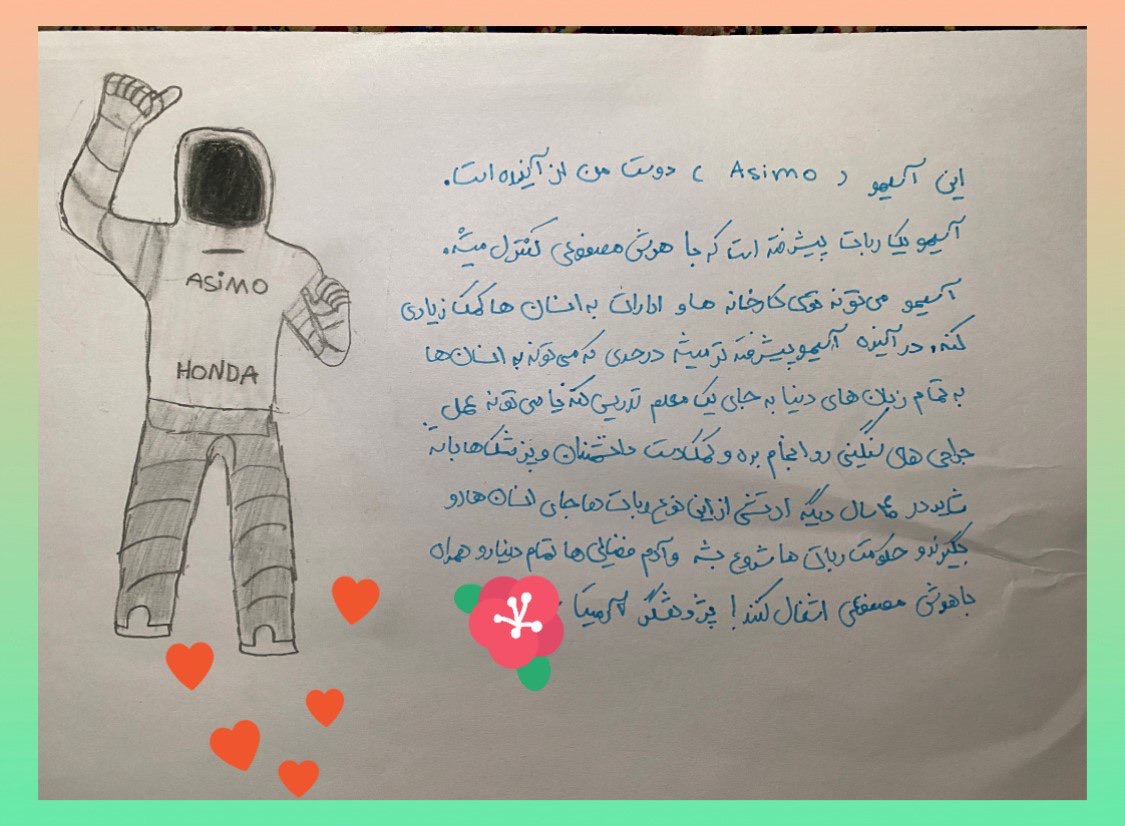 ASIMO
HONDA
این آسیمو ( Asimo ) دوست من از آینده است.
آسیمو یک ربات پیشرفته است که با هوش مصنوعی کنترل میشه.
آسیمو می‌تونه توی کارخانه ها و ادارات به انسان ها کمک زیادی
کنه، در آینده آسیمو پیشرفته تر میشه در حدی که می‌تونه به انسان‌ها
به تمام زبان های دنیا به جای یک معلم تدریس کنه یا می تونه عمل
جراحی های سنگینی رو انجام بده و کمک دست دانشمندان و پزشک ها باشه
شاید در سال دیگه ارتشی از این نوع ربات ها جای انسان ها رو
بگیرند و حکومت رباتی ها شروع بشه و آدم فضایی ها تمام دنیا رو همراه
با هوش مصنوعی اشغال کنند! پژوهشگر